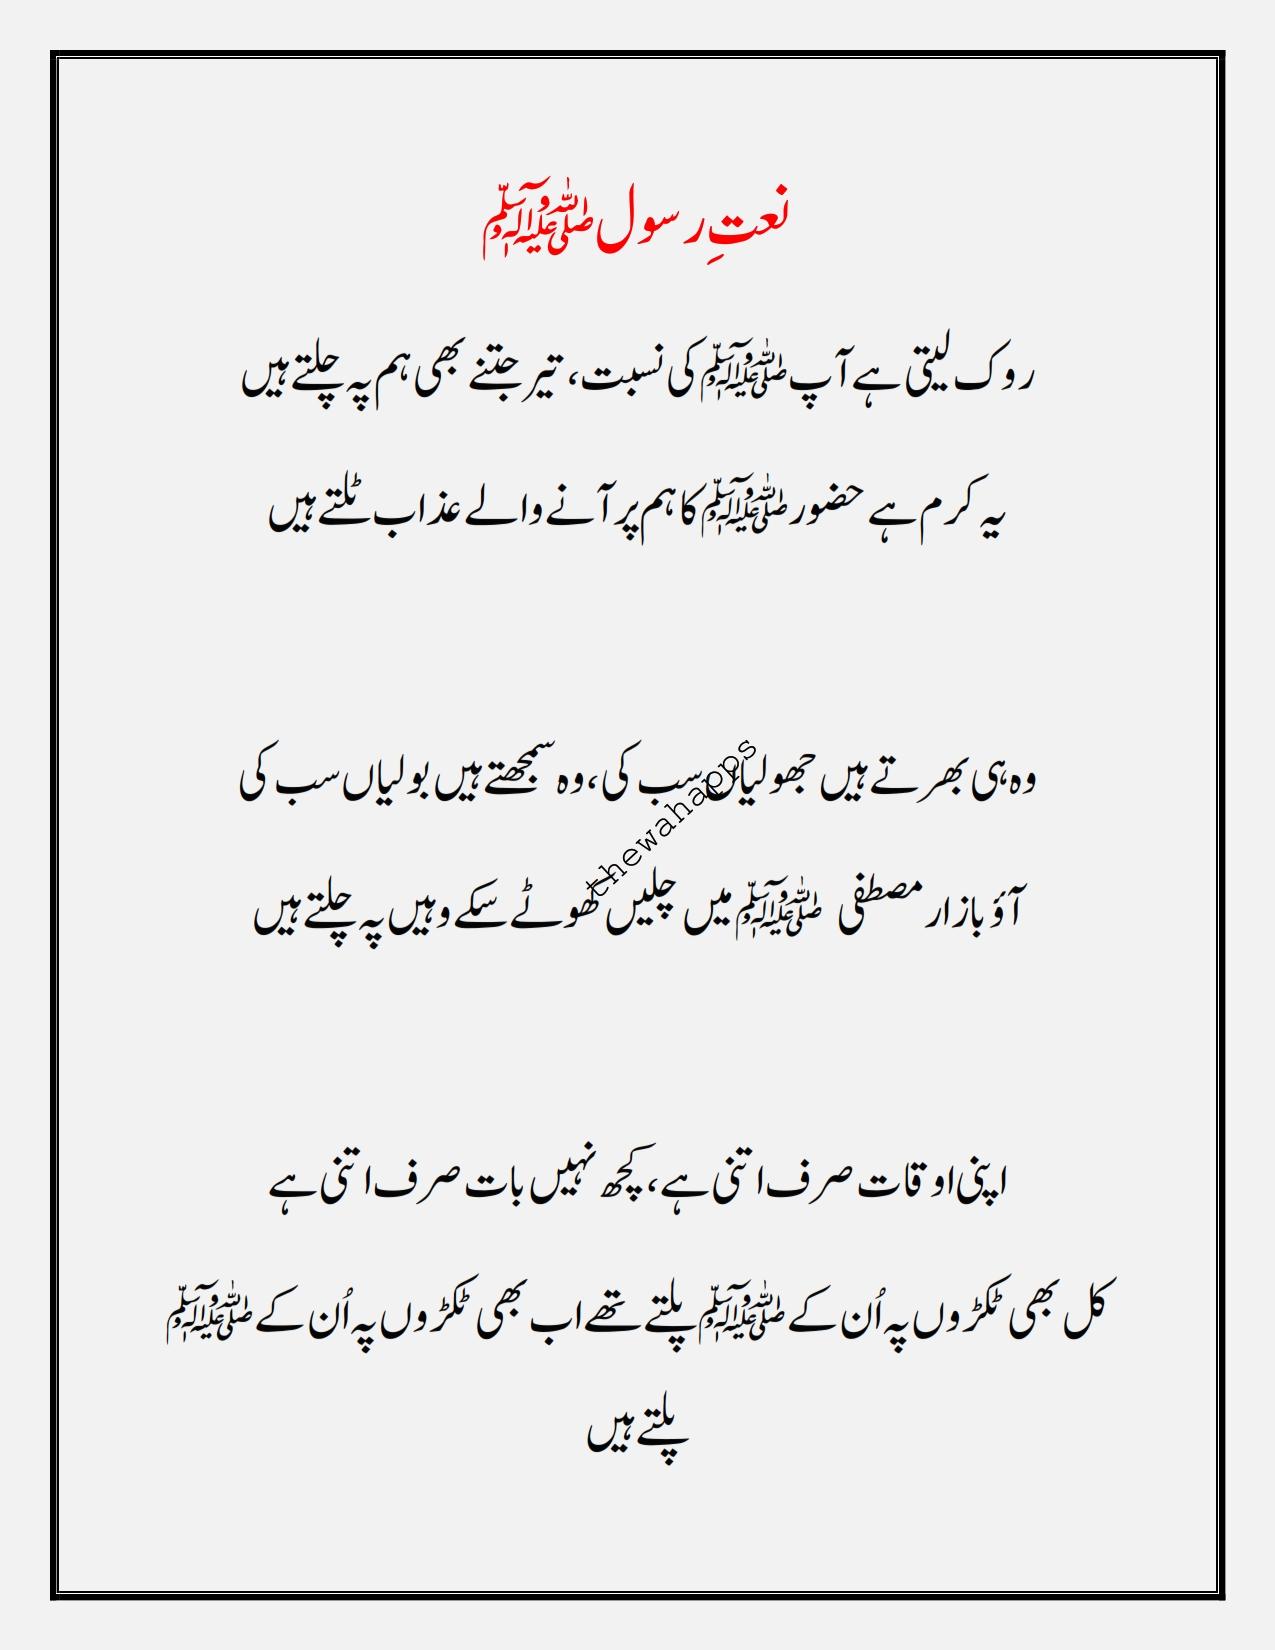 نعتِ رسول ﷺ
روک لیتی ہے آپ ﷺ کی نسبت، تیر جتنے بھی ہم پہ چلتے ہیں
یہ کرم ہے حضور ﷺ کا ہم پر آنے والے عذاب ٹلتے ہیں
وہ ہی بھرتے ہیں جھولیاں سب کی، وہ سمجھتے ہیں بولیاں سب کی
thewahapps
آؤ بازار مصطفی ﷺ میں چلیں کھوٹے سکے وہیں پہ چلتے ہیں
اپنی اوقات صرف اتنی ہے، کچھ نہیں بات صرف اتنی ہے
کل بھی ٹکڑوں پہ اُن کے ﷺ پلتے تھے اب بھی ٹکڑوں پہ اُن کے ﷺ
پلتے ہیں